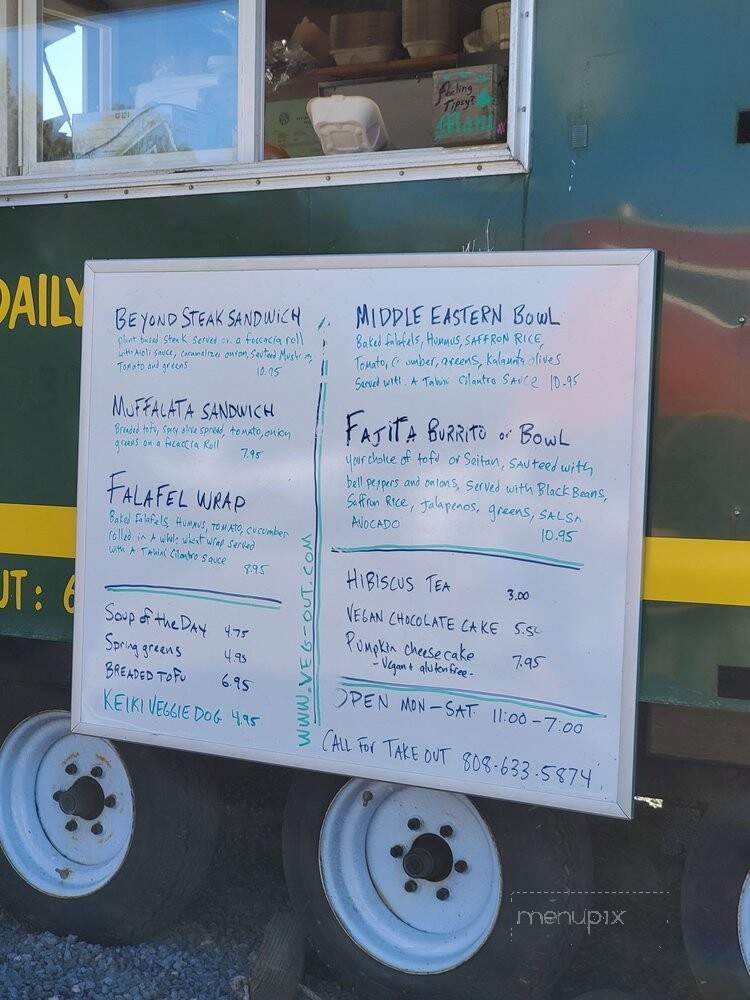 Feeling
Tipsy?
DAILY
UT: 6
BEYOND STEAK SANDWICH
plant based steak served on a foccaccia roll
with Aioli sauce, caramalized onion, Sauteed
Tomato and greens
10.95
MUFFALATA SANDWICH
Breaded tofu, spicy olive spread, tomato, onion
greens on a focaccia Roll
7.95
FALAFEL WRAP
Baked falafels, Hummus, Tomato, cucumber
rolled in A whole wheat wrap served
with A Tahini Cilantro sauce
8.95
Soup of the Day 4.75
Spring greens 4.95
BREADED TOFU 6.95
KEIKI VEGGIE DOG 4.95
WWW.VEG-OUT.COM
MIDDLE EASTERN BOWL
Baked falafels, Hummus, SAFFRON RICE,
Tomato, greens, Kalamata olives
Served with A Tahini Cilantro Sauce 10.95
FAJITA BURRITO or BOWL
Your choice of tofu or Seitan, SAUTEED with
bell peppers and onions, served with Black Beans,
Saffron Rice, Jalapenos, greens, SALSA
AVOCADO
10.95
HIBISCUS TEA 3.00
VEGAN CHOCOLATE CAKE 5.50
Pumpkin cheesecake 7.95
- Vegan + gluten free -
OPEN MON-SAT 11:00-7:00
CALL FOR TAKE OUT 808-633-5874
menupix